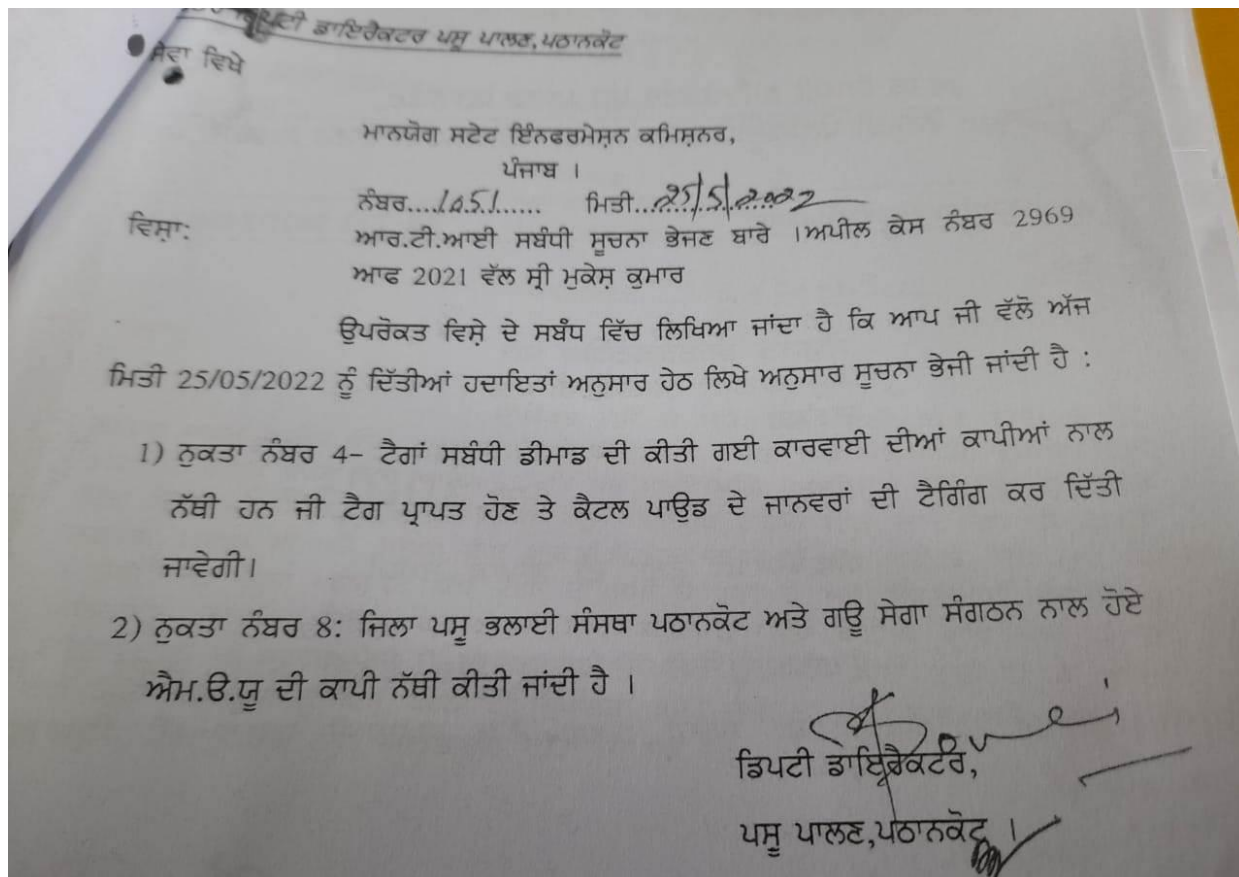 ਡਿਪਟੀ ਡਾਇਰੈਕਟਰ ਪਸੂ ਪਾਲਣ,ਪਠਾਨਕੋਟ
ਸੇਵਾ ਵਿਖੇ
ਮਾਨਯੋਗ ਸਟੇਟ ਇੰਨਫਰਮੇਸ਼ਨ ਕਮਿਸ਼ਨਰ,
ਪੰਜਾਬ ।
ਨੰਬਰ....1051...... ਮਿਤੀ...25/5/2022
ਵਿਸ਼ਾ: ਆਰ.ਟੀ.ਆਈ ਸਬੰਧੀ ਸੂਚਨਾ ਭੇਜਣ ਬਾਰੇ ।ਅਪੀਲ ਕੇਸ ਨੰਬਰ 2969
ਆਫ 2021 ਵੱਲ ਸ੍ਰੀ ਮੁਕੇਸ਼ ਕੁਮਾਰ
ਉਪਰੋਕਤ ਵਿਸ਼ੇ ਦੇ ਸਬੰਧ ਵਿੱਚ ਲਿਖਿਆ ਜਾਂਦਾ ਹੈ ਕਿ ਆਪ ਜੀ ਵੱਲੋ ਅੱਜ
ਮਿਤੀ 25/05/2022 ਨੂੰ ਦਿੱਤੀਆਂ ਹਦਾਇਤਾਂ ਅਨੁਸਾਰ ਹੇਠ ਲਿਖੇ ਅਨੁਸਾਰ ਸੂਚਨਾ ਭੇਜੀ ਜਾਂਦੀ ਹੈ :
1) ਨੁਕਤਾ ਨੰਬਰ 4- ਟੈਗਾਂ ਸਬੰਧੀ ਡੀਮਾਡ ਦੀ ਕੀਤੀ ਗਈ ਕਾਰਵਾਈ ਦੀਆਂ ਕਾਪੀਆਂ ਨਾਲ
ਨੱਥੀ ਹਨ ਜੀ ਟੈਗ ਪ੍ਰਾਪਤ ਹੋਣ ਤੇ ਕੈਟਲ ਪਾਉਡ ਦੇ ਜਾਨਵਰਾਂ ਦੀ ਟੈਗਿੰਗ ਕਰ ਦਿੱਤੀ
ਜਾਵੇਗੀ।
2) ਨੁਕਤਾ ਨੰਬਰ 8: ਜਿਲਾ ਪਸੂ ਭਲਾਈ ਸੰਸਥਾ ਪਠਾਨਕੋਟ ਅਤੇ ਗਊ ਸੇਗਾ ਸੰਗਠਨ ਨਾਲ ਹੋਏ
ਐਮ.ਓ.ਯੂ ਦੀ ਕਾਪੀ ਨੱਥੀ ਕੀਤੀ ਜਾਂਦੀ ਹੈ ।
ਡਿਪਟੀ ਡਾਇਰੈਕਟਰ,
ਪਸੂ ਪਾਲਣ,ਪਠਾਨਕੋਟ ।